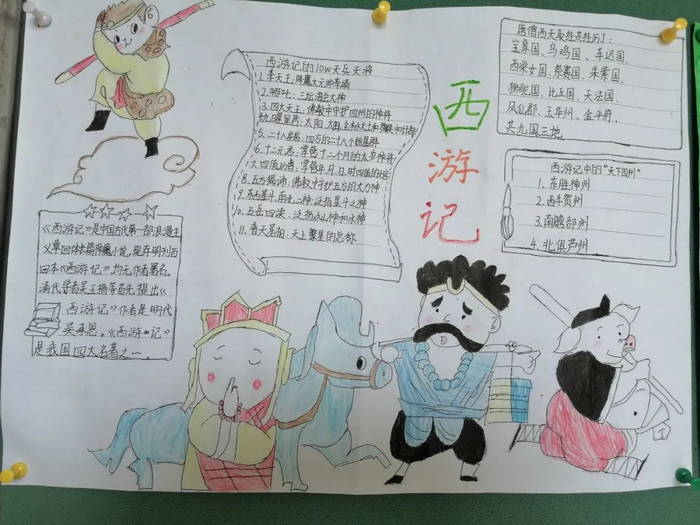 西游记的low天兵天将
1.李天王:降魔大元帅李靖
2.哪吒:三坛海会大神
3.四大天王:佛教中守护四州的神将
4.九曜星君:太阳、太阴、
5.二十八星宿:四方的二十八个组星群
6.十二元辰:掌管十二个月的太岁神将
7.四值功曹:掌管年、月、日、时四值的
8.五方揭谛:佛教中守护五方的大力神
9.东西星斗,南北二神:泛指星斗之神
10.五岳四渎:泛指众山神和水神
11.普天星相:天上繁星的总称
西
游
记
唐僧西天取经共经历了:
宝象国、乌鸡国、车迟国、
西梁女国、祭赛国、朱紫国、
狮驼国、比丘国、天法国、
凤仙郡、玉华州、金平府、
共九国三地
西游记中的"天下四州"
1、东胜神州
2、西牛贺州
3、南瞻部州
4、北俱芦州
《西游记》是中国古代第一部浪漫主
义章回体长篇神魔小说。现存明刊百
回本《西游记》均无作者署名。
清代学者吴玉搢等首先提出《
西游记》作者是明代
吴承恩。《西游记》
是我国四大名著之一。